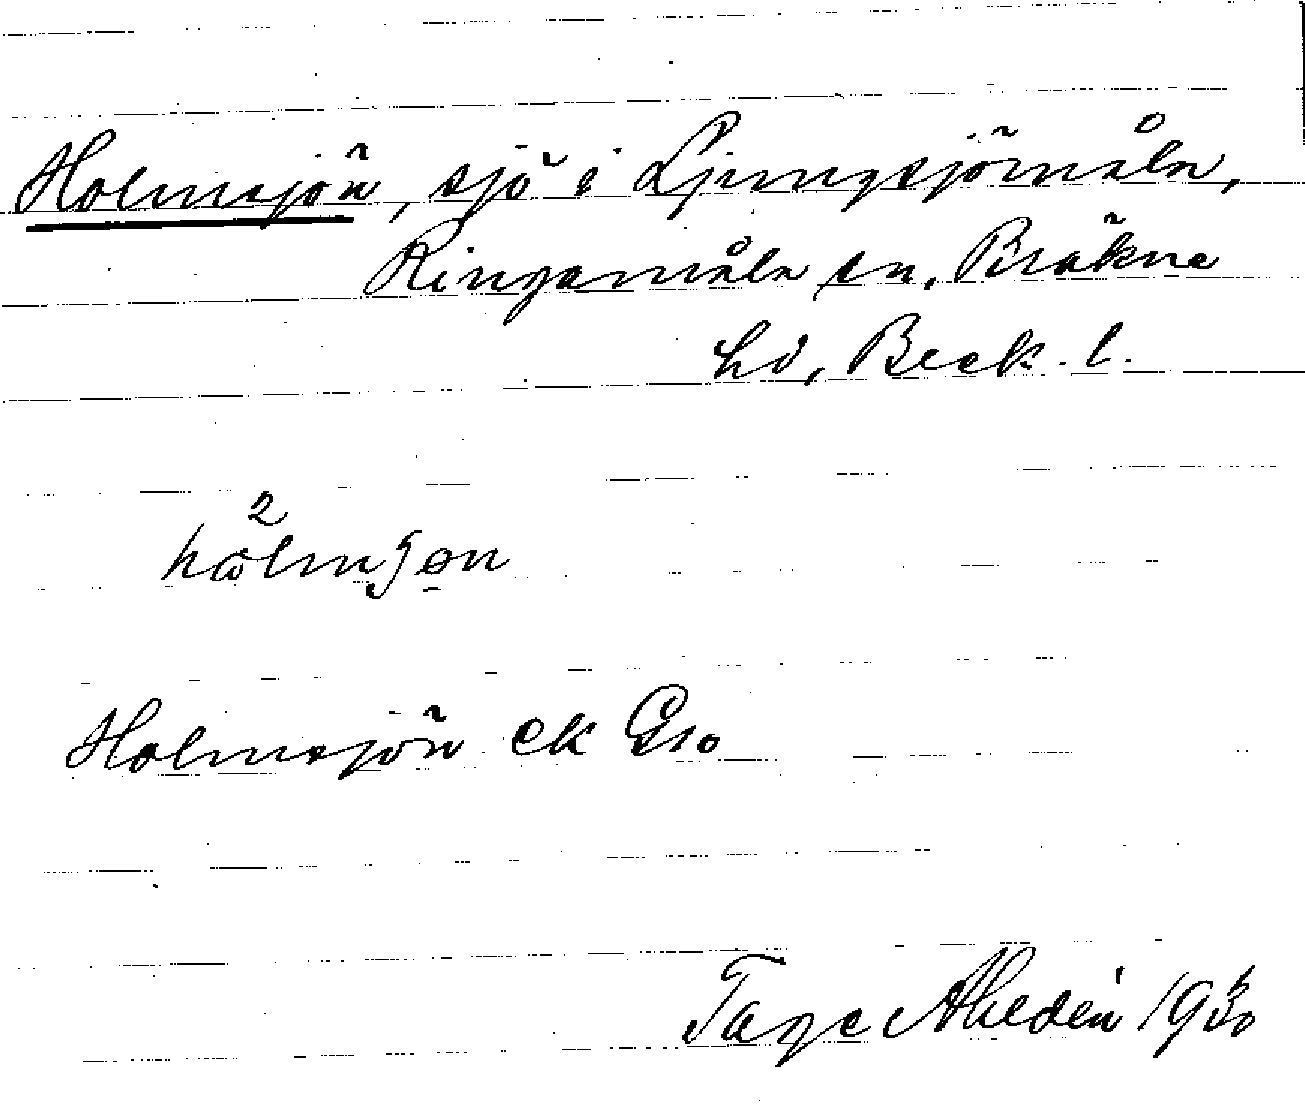 Holmsjön, sjö i Ljungsjömåla,
Ringamåla sn, Bräkne
hd, Blek. l.
Holmsjön ek Gso
Tage Ahldén 1930